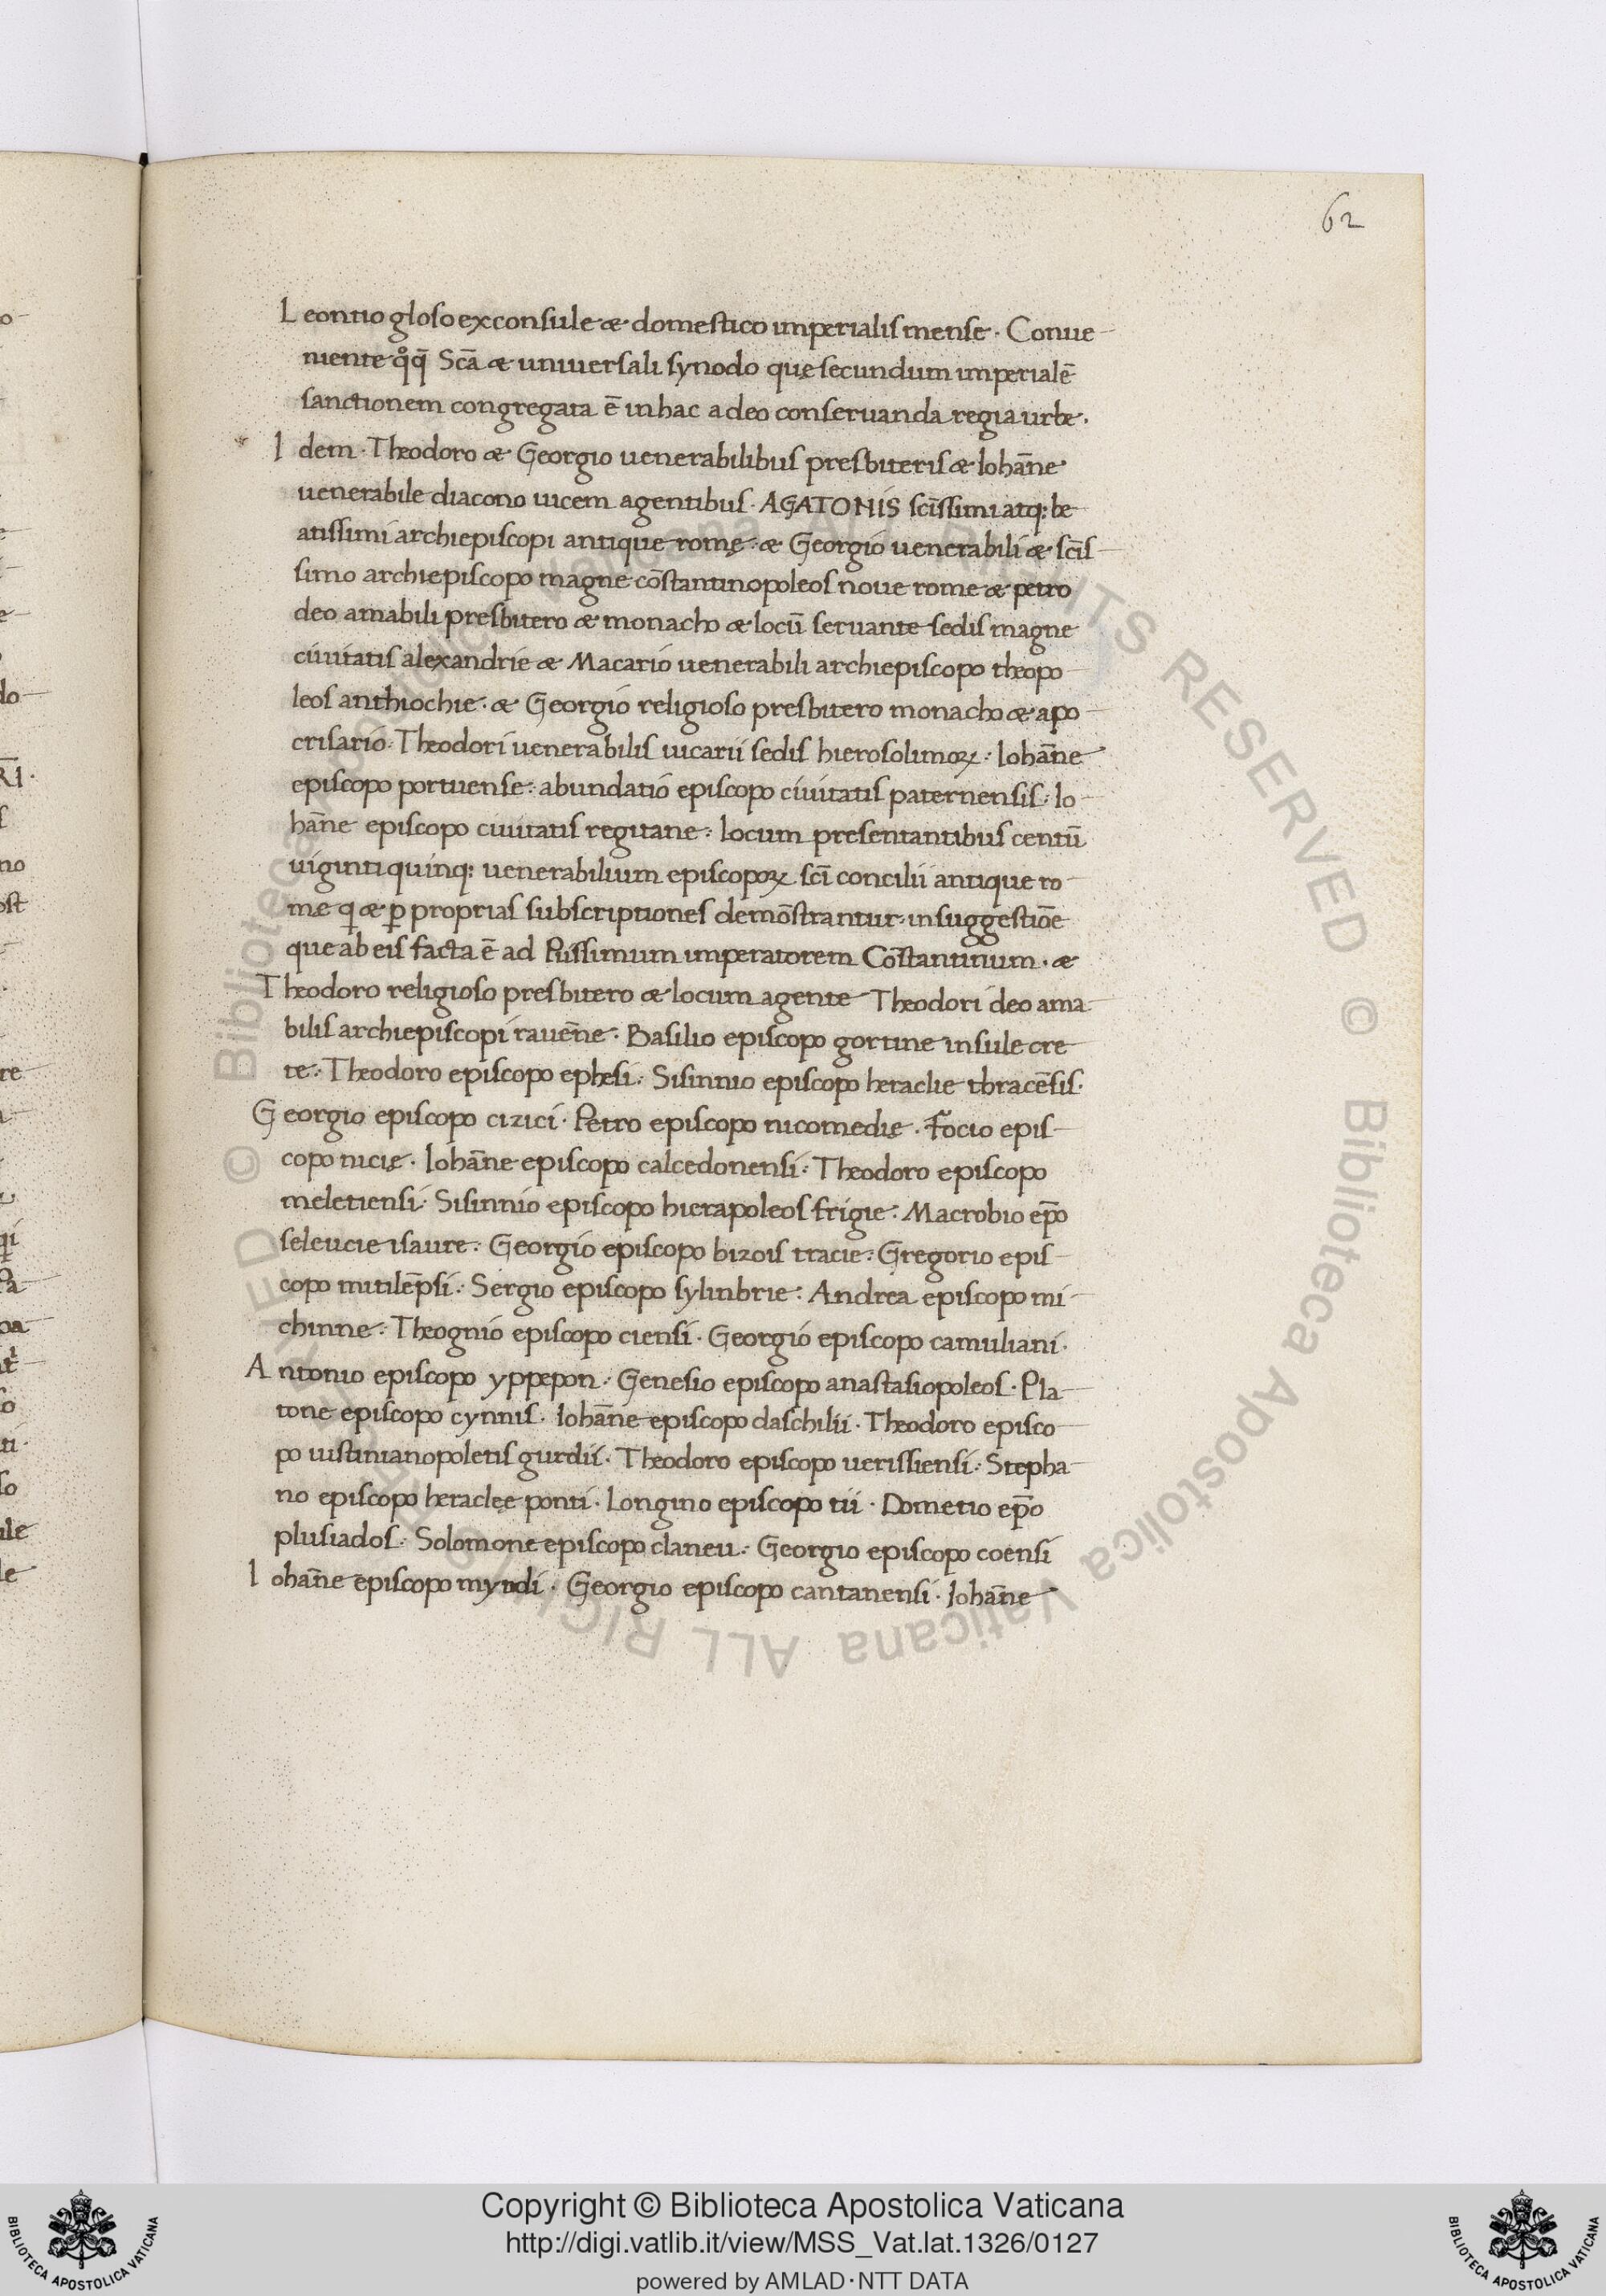 62
Leontio gloso exconsule & domestico imperialis mense · Conue
niente qͦq̄ Scā & uniuersali synodo quę secundum imperialē
sanctionem congregata ē in hac a deo conseruanda regia urbe ·
Idem · Theodoro & Georgio uenerabilibus presbiteris & Iohān̄e
uenerabile diacono uicem agentibus · AGATONIS scīssimi atq: be
atissimi archiepiscopi antique romę : & Georgio uenerabili & scīs
simo archiepiscopo magne cōstantinopoleos noue rome & petro
deo amabili presbitero & monacho & locū seruante sedis magne
ciuitatis alexandrie & Macario uenerabili archiepiscopo theopo
leos anthiochie · & Georgio religioso presbitero monacho & apo
crisario : Theodori uenerabilis uicarii sedis hierosolimoꝝ : Iohān̄e
episcopo portuense : abundatio episcopo ciuitatis paternensis : Io
hān̄e episcopo ciuitatis regitane : locum presentantibus centū
uiginti quinq: uenerabilium episcopoꝝ scī concilii antique ro
me qi & ꝑ proprias subscriptiones demōstrantur · in suggestiōe
que ab eis facta ē ad Piissimum imperatorem Cōstantinum · &
Theodoro religioso presbitero & locum agente Theodori deo ama
bilis archiepiscopi rauen̄e · Basilio episcopo gortine insule cre
te : Theodoro episcopo ephesi : Sisinnio episcopo heraclie thracēsis ·
Georgio episcopo cizici · Petro episcopo nicomedię · Focio epis
copo nicię · Iohān̄e episcopo calcedonensi : Theodoro episcopo
meletiensi : Sisinnio episcopo hierapoleos frigie : Macrobio ep̄o
seleucie isaure : Georgio episcopo bizois tracie : Gregorio epis
copo mitilēpsi : Sergio episcopo sylinbrie : Andrea episcopo mi
thinne : Theognio episcopo ciensi · Georgio episcopo camuliani ·
Antonio episcopo yppepon : Genesio episcopo anastasiopoleos · Pla
tone episcopo cynnis · Iohān̄e episcopo daschilii · Theodoro episco
po iustinianopoletis gurdii · Theodoro episcopo uerissiensi : Stepha
no episcopo heraclęe ponti · Longino episcopo tii · Dometio ep̄o
plusiados : Solomone episcopo claneu : Georgio episcopo coensi
Iohān̄e episcopo myndi · Georgio episcopo cantanensi · Iohān̄e
© Biblioteca Apostolica Vaticana ALL RIGHTS RESERVED © Biblioteca Apostolica Vaticana ALL RIGHTS RESERVED
Copyright © Biblioteca Apostolica Vaticana
http://digi.vatlib.it/view/MSS_Vat.lat.1326/0127
powered by AMLAD·NTT DATA
BIBLIOTECA APOSTOLICA VATICANA
BIBLIOTECA APOSTOLICA VATICANA